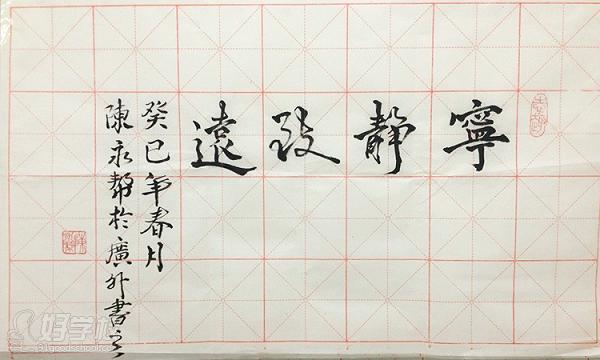 寧靜致遠
癸巳年春月
陳永幇於廣外書之
好学校